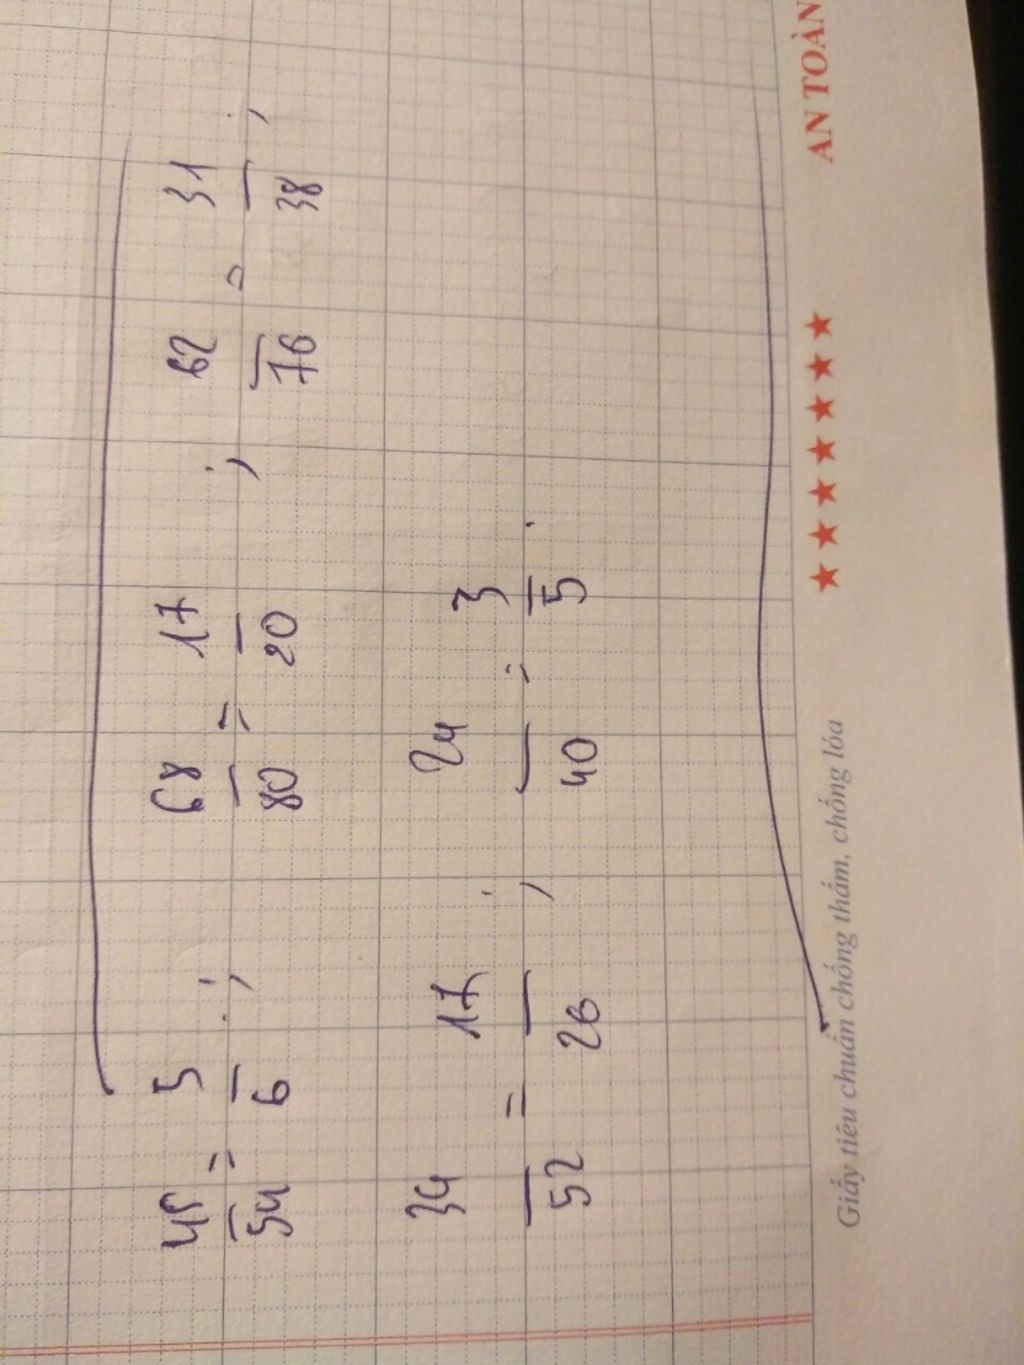 45/54 = 5/6 ; 68/80 = 17/20 ; 62/76 = 31/38 ;
34/52 = 17/26 ; 24/40 = 3/5 .
Giấy tiêu chuẩn chống thấm, chống lóa ★★★★★★★ AN TOÀN